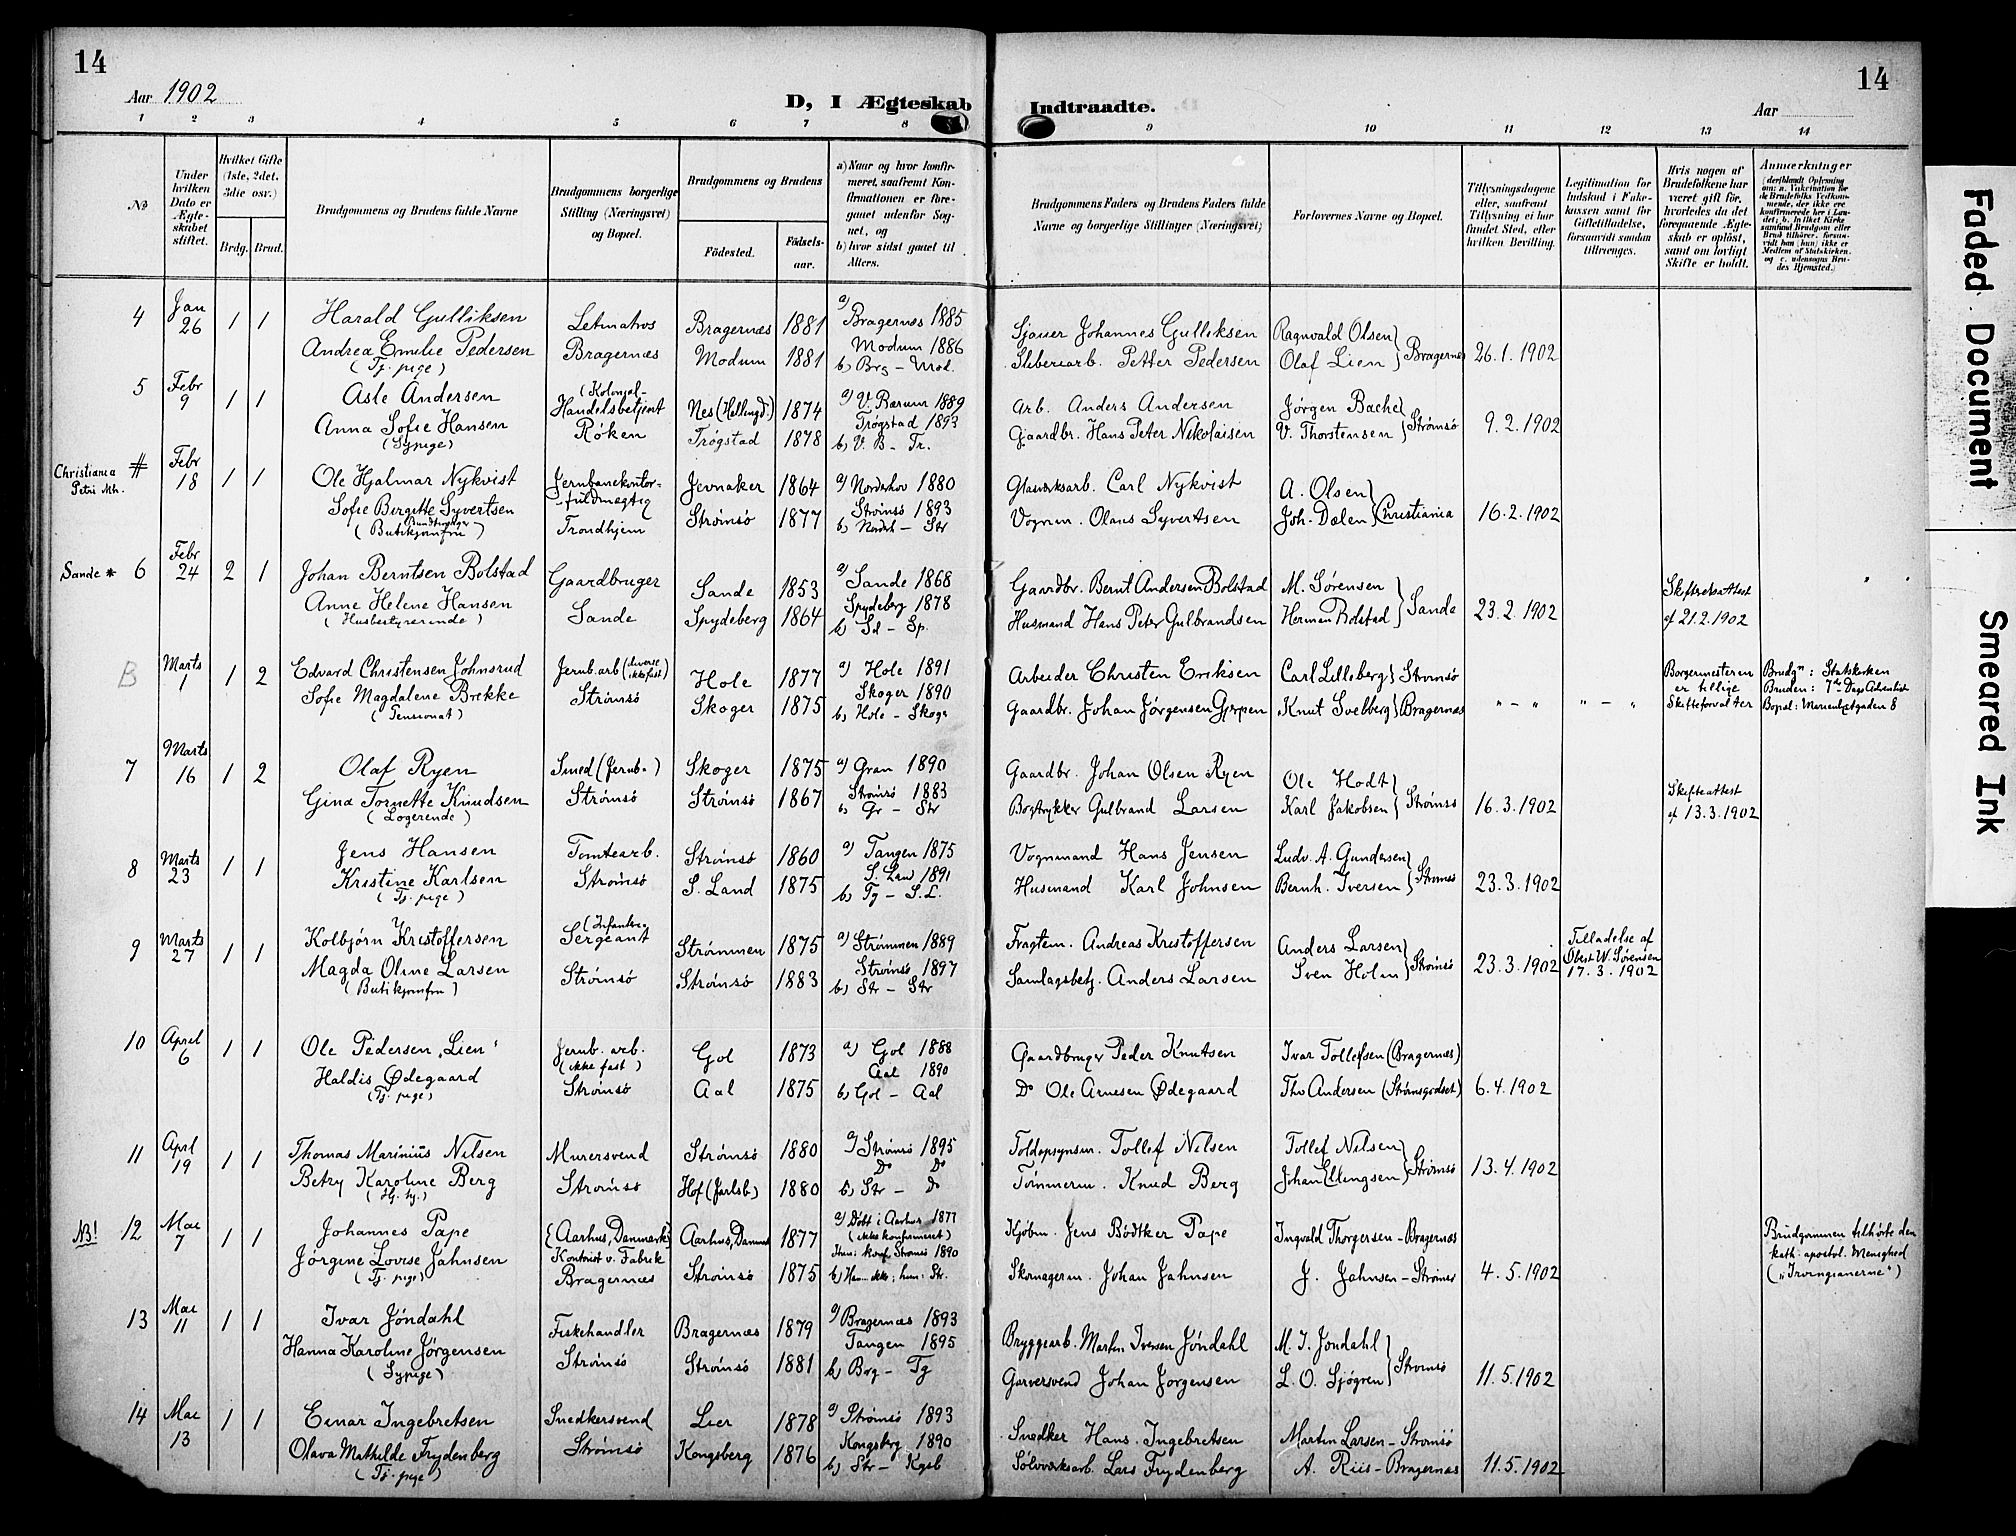 14
Aar 1902
D, I Ægteskab Indtraadte.
Aar
14
1 2 3 4 5 6 7 8 9 10 11 12 13 14
№
Under hvilken Dato er Ægteskabet stiftet.
Hvilket Gifte (1ste, 2det, 3die osv.)
Brdg. Brud.
Brudgommens og Brudens fulde Navne
Brudgommens borgerlige Stilling (Næringsvei) og Bopæl.
Brudgommens og Brudens
Fødested.
Fødselsaar.
a) Naar og hvor konfirmeret, saafremt Konfirmationen er foregaaet udenfor Sognet, og
b) hvor sidst gaaet til Alters.
Brudgommens Faders og Brudens Faders fulde Navne og borgerlige Stillinger (Næringsvei)
Forlovernes Navne og Bopæl.
Tillysningsdagene eller, saafremt Tillysning ei har fundet Sted, efter hvilken Bevilling.
Legitimation for Indskud i Enkekassen samt for Giftetilladelse, forsaavidt saadan tiltrænges.
Hvis nogen af Brudefolkene har været gift før, hvorledes da det foregaaende Ægteskab er opløst, samt om lovligt Skifte er holdt.
Anmærkninger
4 Jan 26 1 1 Harald Gulliksen Letmatros Bragernæs 1881 a) Bragernæs 1885 Sjauer Johannes Gulliksen Ragnvald Olsen
Andrea Emilie Pedersen Bragernæs Modum 1881 Modum 1886 Sliberiarb. Petter Pedersen Olaf Lien } Bragernæs 26.1.1902
(Tj. pige) b) Brg - Mod.
5 Febr 9 1 1 Asle Andersen (Kolonial-Handelsbetjent Nes (Hallingd.) 1874 a) V. Bærum 1889 Arb. Anders Andersen Jörgen Bache
Anna Sofie Hansen Røken Trøgstad 1878 Trøgstad 1893 Gaardbr. Hans Peter Nikolaisen V. Thorstensen } Strömsö 9.2.1902
(Sypige) b) V. B. - Tr.
Christiania Petri Mh. # Febr 18 1 1 Ole Hjalmar Nykvist Jernbanekontor- Jevnaker 1864 a) Norderhov 1880 Glasværksarb. Carl Nykvist A. Olsen
Sofie Birgitte Syvertsen fuldmægtig Strömsö 1877 Strömsö 1893 Vognm. Olaus Syvertsen Joh. Dalen } Christiania 16.2.1902
(Butikjomfru) Trondhjem b) Nordrh - Str
Sande * 6 Febr 24 2 1 Johan Berntsen Bolstad Gaardbruger Sande 1853 a) Sande 1868 Gaardbr. Bernt Andersen Bolstad M. Sörensen Skifteretsattest
Anne Helene Hansen Sande Spydeberg 1864 Spydeberg 1878 Husmand Hans Peter Gulbrandsen Herman Bolstad } Sande 23.2.1902 af 21.2.1902
(Husbestyrerinde) b) Sd - Sp.
B Marts 1 1 2 Edvard Christensen Johnsrud Jernb.arb (diverse ikke fast) Hole 1877 a) Hole 1891 Arbeider Christen Eriksen Carl Lilleberg } Strömsö Borgermesteren er tillige Skifteforvalter Brudgm: Statskirken
Sofie Magdalene Brekke Strömsö Skoger 1875 Skoger 1890 Gaardbr. Johan Jörgensen Gjerpen Knut Svelberg } Bragernæs " - " " - " Bruden: 7de Dags Adventist
b) Hole - Skoger Bopæl: Marienlystgaden 8
7 Marts 16 1 2 Olaf Ryen Smed (Jernb.) Skoger 1875 a) Gran 1890 Gaardbr. Johan Olsen Ryen Ole Hodt
Gina Tornette Knudsen Strömsö Strömsö 1867 Strömsö 1883 Bogtrykker Gulbrand Larsen Karl Jakobsen } Strömsö 16.3.1902 Skifteattest af 13.3.1902
(Logerende) b) Gr - Str
8 Marts 23 1 1 Jens Hansen Tomtearb. Strömsö 1860 a) Tangen 1875 Vognmand Hans Jensen Ludv. A. Gundersen
Kristine Karlsen Strömsö S. Land 1875 S. Land 1891 Husmand Karl Johnsen Bernh. Iversen } Strömsö 23.3.1902
(Tj. pige) b) Tg - S.L.
9 Marts 27 1 1 Kolbjörn Kristoffersen (Infanteri) Sergeant Strømmen 1875 a) Strømmen 1889 Fragtem. Andreas Kristoffersen Anders Larsen Tilladelse af
Magda Oline Larsen Strömsö Strömsö 1883 Strömsö 1897 Samlagsbetj. Anders Larsen Sven Holm } Strömsö 23.3.1902 Oberst W. Sörensen
(Butikjomfru) b) Str - Str 17.3.1902
10 April 6 1 1 Ole Pedersen „Lien" Jernb. arb. Gol 1873 a) Gol 1888 Gaardbruger Peder Knutsen Ivar Tollefsen (Bragernæs)
Haldis Ødegaard (ikke fast) Aal 1875 Aal 1890 Do Ole Arnesen Ødegaard Thv Andersen (Strömsgodset) 6.4.1902
(Tj. pige) Strömsö b) Gol - Aal
11 April 19 1 1 Thomas Marinius Nilsen Murersvend Strömsö 1880 a) Strömsö 1895 Toldopsynsm. Tollef Nilsen Tollef Nilsen
Betzy Karoline Berg Strömsö Hof (Jarlsb.) 1880 Do Do Tömmerm. Knud Berg Johan Ellingsen } Strömsö 13.4.1902
b) Str - Do
NB! 12 Mai 7 1 1 Johannes Pape (Aarhus, Danmark) Aarhus, Danmark 1877 a) Döbt i Aarhus 1877 Kjöbm. Jens Bödtker Pape Ingvald Thorgersen - Bragernæs Brudgommen tilhörte den
Jörgine Lovise Jahnsen Kontorist v. Fabrik Strömsö 1875 (ikke konfirmeret) Skomagerm. Johan Jahnsen J. Jahnsen - Strömsö 4.5.1902 kath. apostol. Menighed
(Tj. pige) Bragernæs Hun: konf. Strömsö 1890 („Irvingianerne")
b) Han - ikke; hun: Str.
13 Mai 11 1 1 Ivar Jöndahl Fiskehandler Bragernæs 1879 a) Bragernæs 1893 Bryggearb. Martin Iversen Jöndahl M. I. Jöndahl
Hanna Karoline Jörgensen Strömsö Strömsö 1881 Tangen 1895 Garversvend Johan Jörgensen L. O. Sjögren } Strömsö 11.5.1902
(Sypige) b) Brg - Tg
14 Mai 13 1 1 Einar Ingebretsen Snedkersvend Lier 1878 a) Strömsö 1893 Snedker Hans Ingebretsen Martin Larsen - Strömsö
Olava Mathilde Frydenberg Strömsö Kongsberg 1876 Kongsberg 1890 Sölvværksarb. Lars Frydenberg A. Riis - Bragernæs 11.5.1902
(Tj. pige) b) Str - Kgsb
Faded Document
Smeared Ink